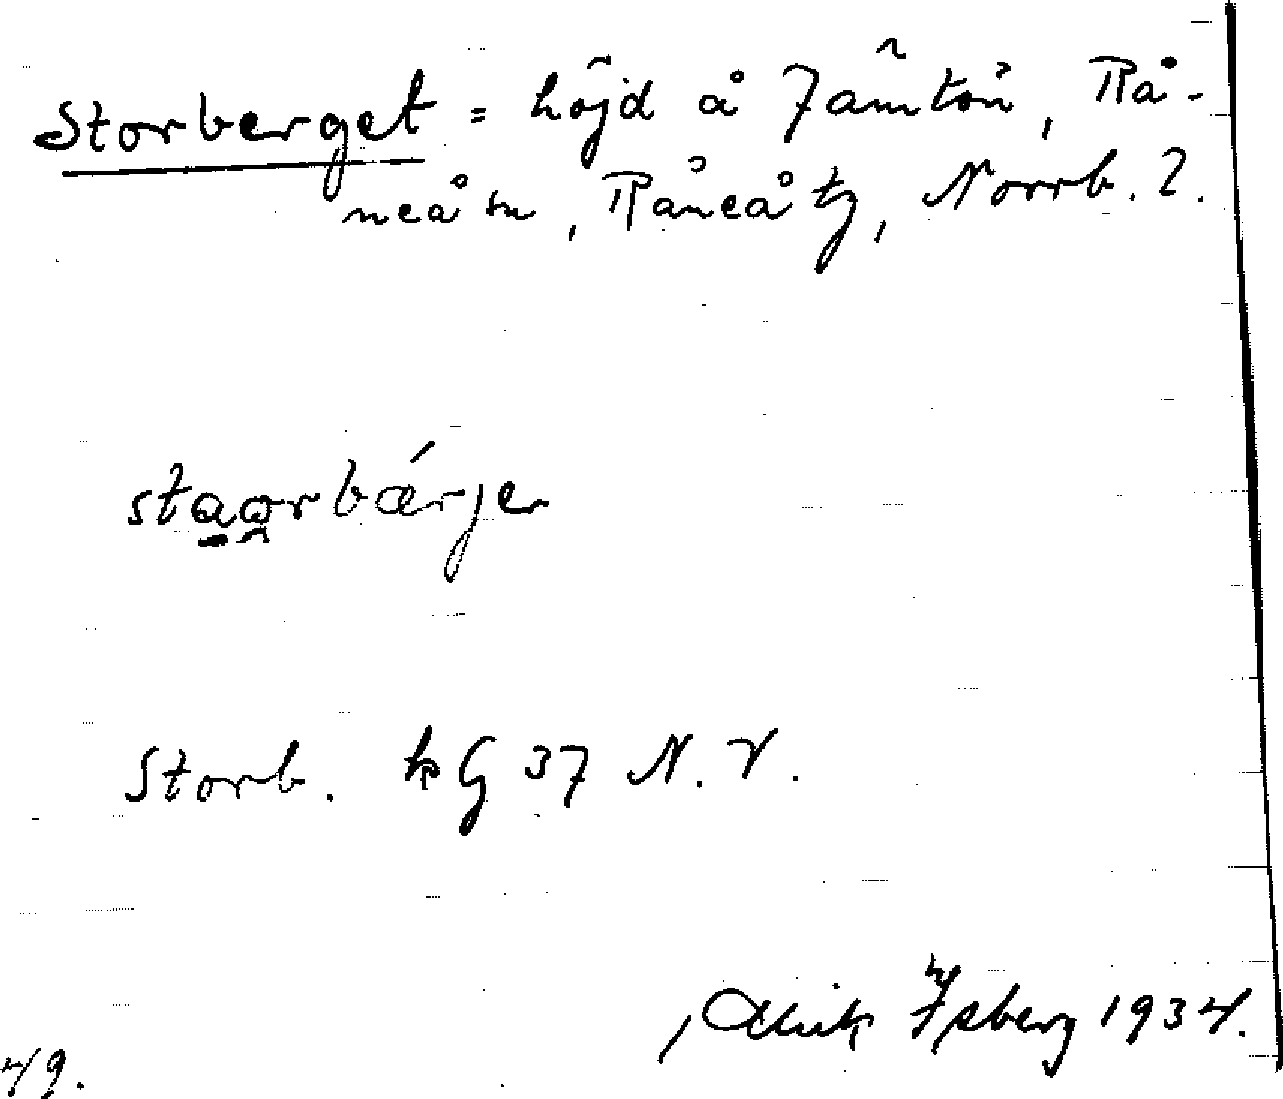 Storberget = höjd å Jämtön, Rå-
neå sn, Råneå tg, Norrb. l.
staorbǽrjer
Storb. kG 37 N.V.
Ulrik Isberg 1934.
49.